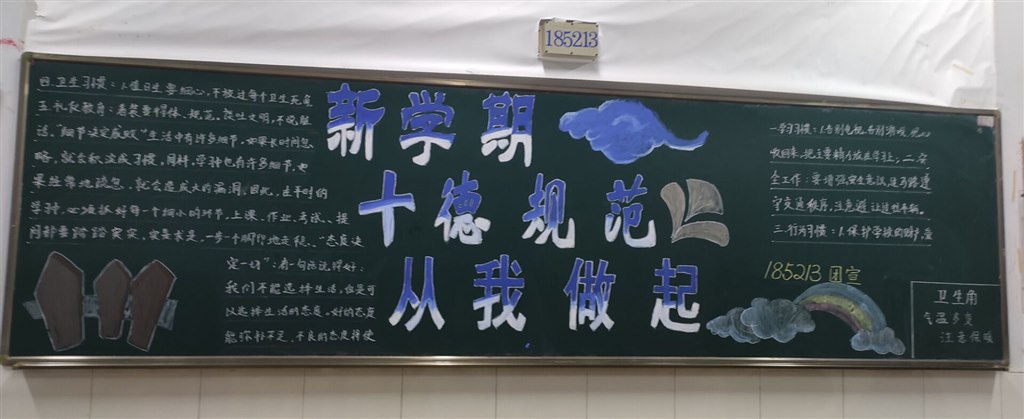 185213
新学期
十德规范
从我做起
四.卫生习惯：1.值日生要细心,不放过每个卫生死角
五.礼仪教育：着装要得体、规范。谈吐文明,不说脏
话。"细节决定成败"生活中有许多细节,如果长时间忽
略,就会积淀成习惯,同样,学习也有许多细节,如
果经常地疏忽,就会造成大的漏洞。因此,在平时的
学习,必须抓好每一个细小的环节,上课、作业、考试、提
问都要踏踏实实,实事求是,一步一个脚印地走稳。"态度决
定一切"：有一句话说得好：
我们不能选择生活,但是可
以选择生活的态度,好的态度
能弥补不足,不良的态度将使
一学习习惯：1.告别电视,告别游戏,把心
收回来,把主要精力放在学习上,二.安
全工作：要增强安全意识,走马路遵
守交通秩序,注意避让过往车辆。
三.行为习惯：1.保护学校的财产,爱
185213 团宣
卫生角
气温多变
注意保暖